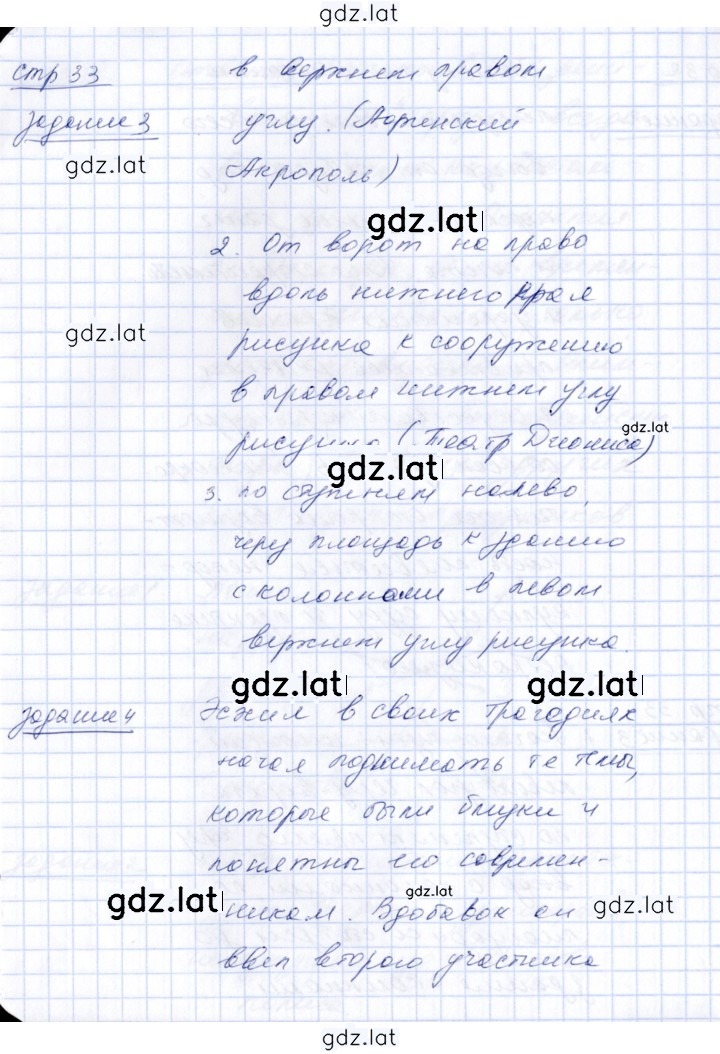 gdz.lat
стр 33
в верхнем правом
задание 3
углу. (Афинский
gdz.lat
Акрополь)
gdz.lat
2. От ворот на право
вдоль нижнего края
gdz.lat
рисунка к сооружению
в правом нижнем углу
gdz.lat
рисунка (Театр Диониса)
gdz.lat
3. по ступеням налево,
через площадь к зданию
с колоннами в левом
верхнем углу рисунка.
gdz.lat gdz.lat
задание 4
Эсхил в своих трагедиях
начал поднимать те темы,
которые были близки и
понятны его современ-
gdz.lat gdz.lat gdz.lat
никам. Вдобавок он
ввел второго участника
gdz.lat